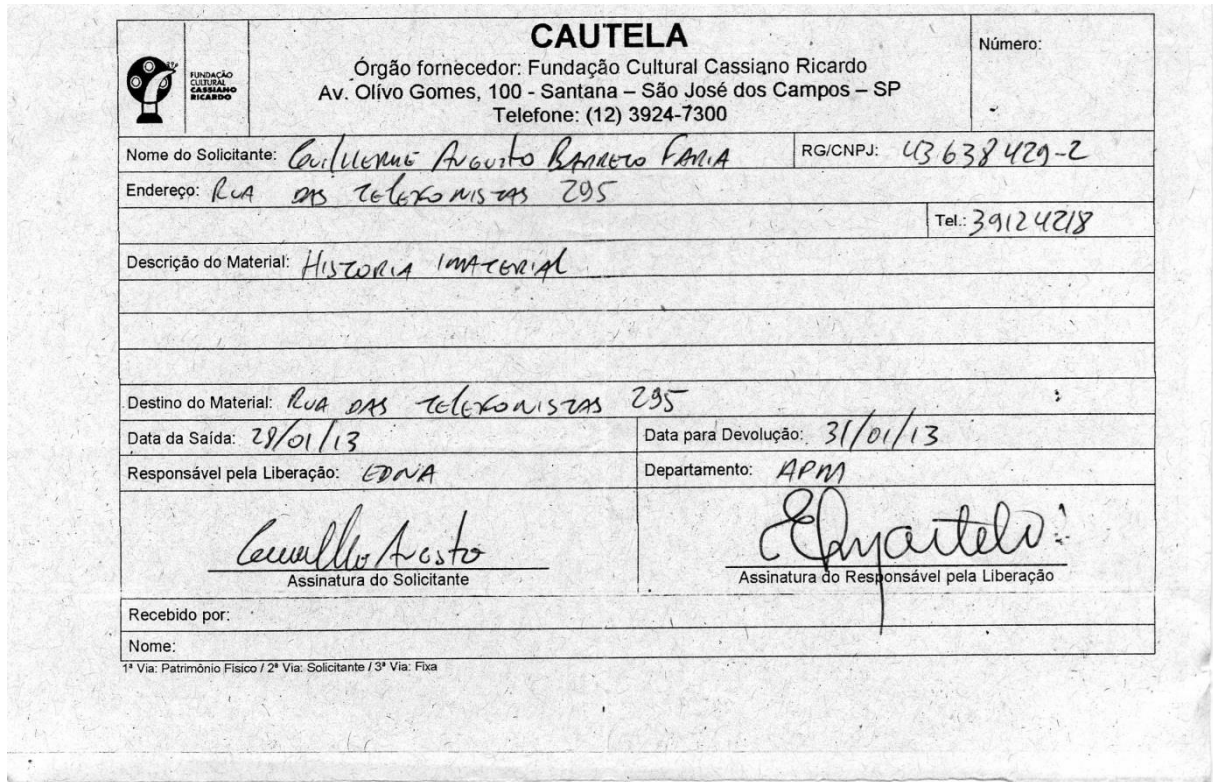 FUNDAÇÃO
CULTURAL
CASSIANO
RICARDO
CAUTELA
Órgão fornecedor: Fundação Cultural Cassiano Ricardo
Av. Olívo Gomes, 100 - Santana – São José dos Campos – SP
Telefone: (12) 3924-7300
Número:
Nome do Solicitante: Guilherme Augusto Barreto Faria RG/CNPJ: 43638429-2
Endereço: Rua das Telefonistas 295
Tel.: 39124218
Descrição do Material: Historia Imaterial
Destino do Material: Rua das Telefonistas 295
Data da Saída: 28/01/13 Data para Devolução: 31/01/13
Responsável pela Liberação: EDNA Departamento: APM
Assinatura do Solicitante Assinatura do Responsável pela Liberação
Recebido por:
Nome:
1ª Via: Patrimônio Físico / 2ª Via: Solicitante / 3ª Via: Fixa